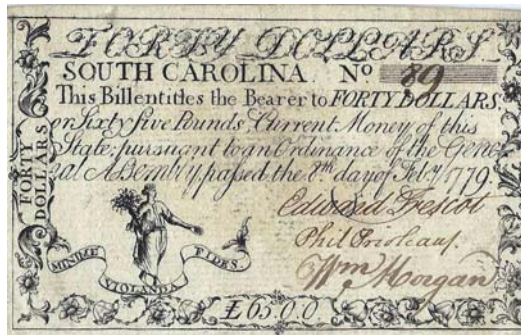 FORTY DOLLARS
SOUTH CAROLINA. No 89
This Bill entitles the Bearer to FORTY DOLLARS,
or Sixty five Pounds, Current Money of this
State; pursuant to an Ordinance of the Gene
ral Assembly, passed the 8th day of Feb. 1779.
FORTY
DOLLARS
Edward Trescot
Phil Prioleau.
Wm Morgan
MINIME
VIOLANDA
FIDES.
£65.0.0